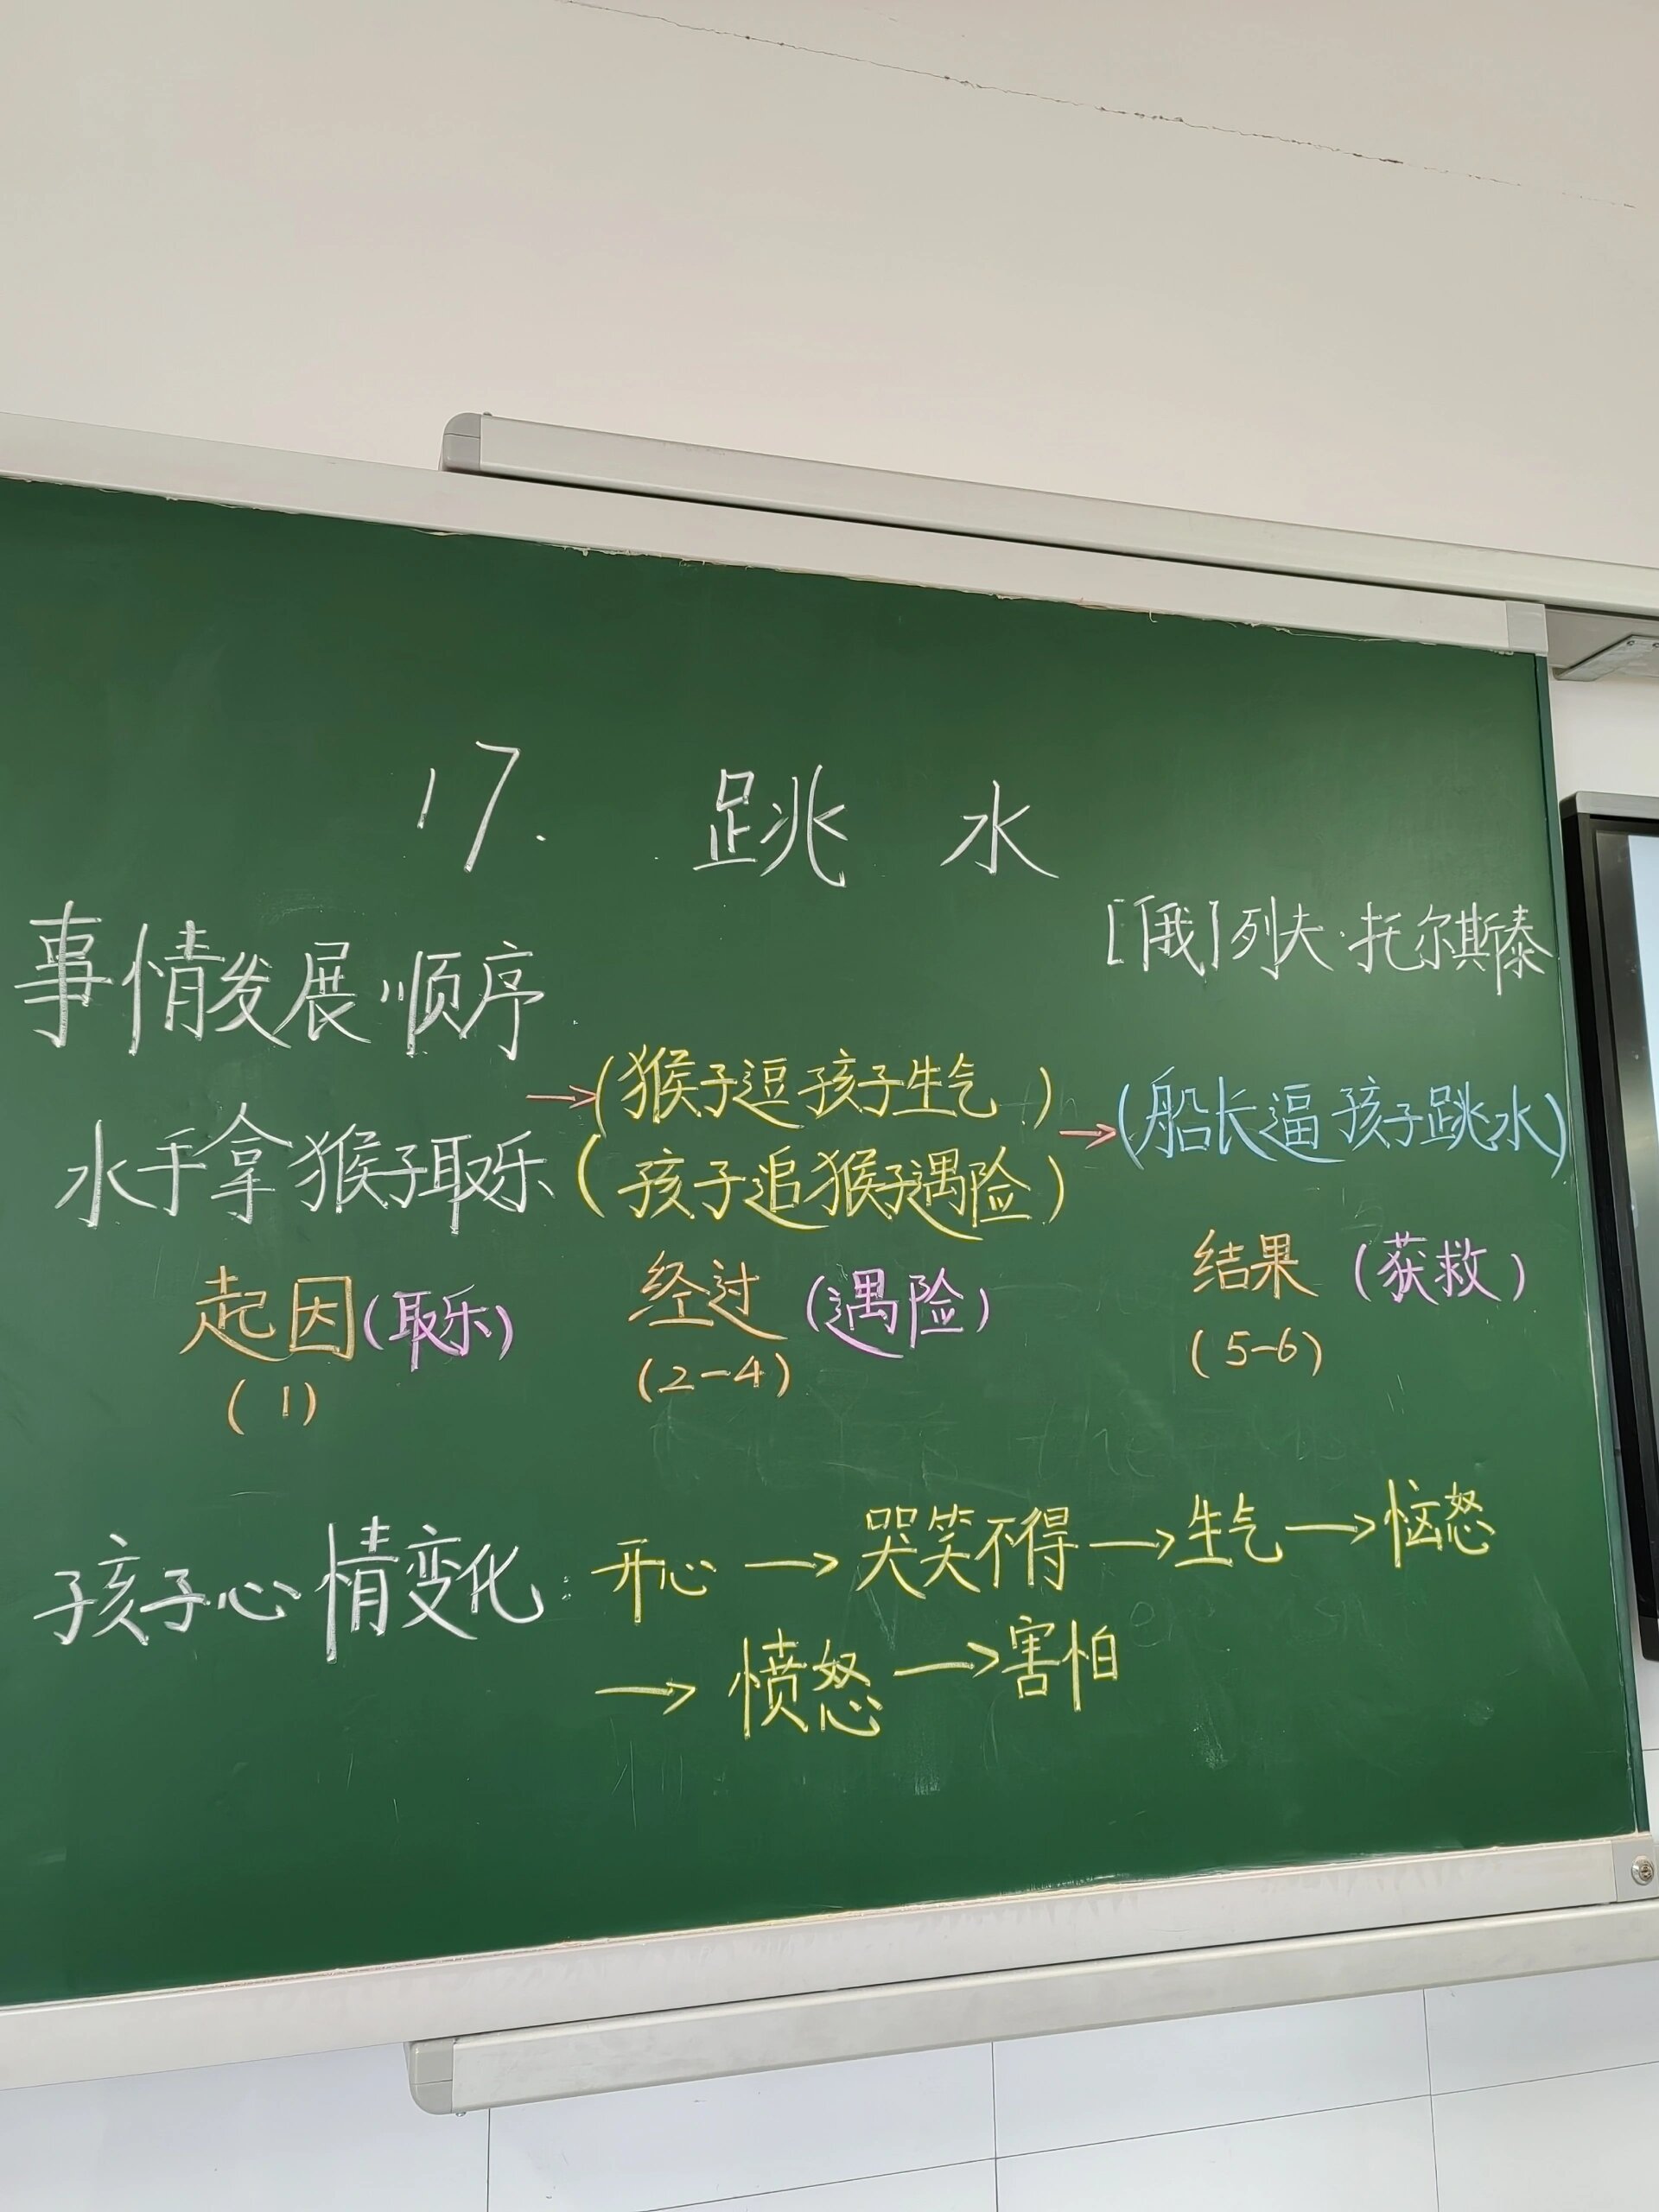 17. 跳水
[俄]列夫·托尔斯泰
事情发展顺序
水手拿猴子取乐 →(猴子逗孩子生气) →(船长逼孩子跳水)
(孩子追猴子遇险)
起因(取乐) 经过(遇险) 结果(获救)
(1) (2-4) (5-6)
孩子心情变化: 开心→哭笑不得→生气→恼怒
→愤怒→害怕